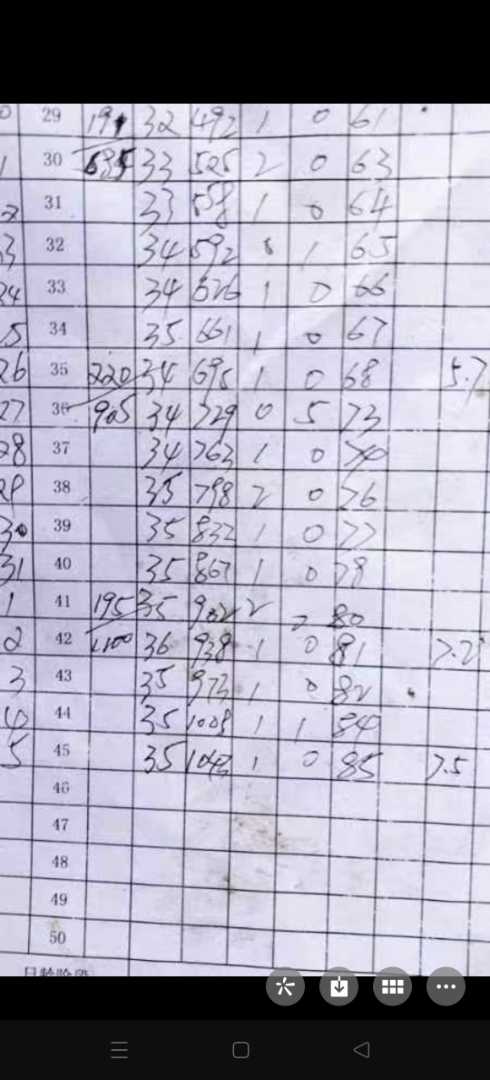 29 191 32 492 1 0 61
1 30 685 33 525 2 0 63
2 31 33 558 1 0 64
33 32 34 592 1 65
24 33 34 626 1 0 66
5 34 35 661 1 0 67
26 35 220 34 695 1 0 68 5.7
27 36 905 34 729 0 5 73
28 37 34 763 1 0
29 38 35 798 2 0 76
30 39 35 832 1 0 77
31 40 35 867 1 0 78
1 41 195 35 902 2 80
2 42 1100 36 938 1 0 81 7.2
3 43 35 973 1 0 82
4 44 35 1008 1 1 84
5 45 35 1043 1 0 85 7.5
46
47
48
49
50
日龄阶段